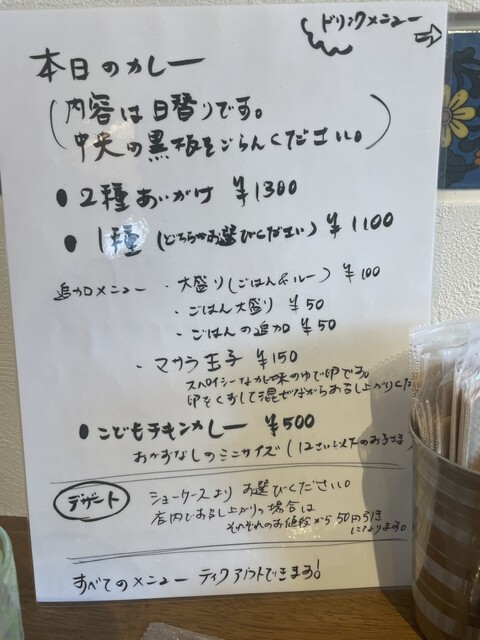 ドリンクメニュー
本日のカレー
(内容は日替りです。
中央の黒板をごらんください。)
• 2種あいがけ ¥1300
• 1種(どちらかお選びください) ¥1100
追加メニュー ・大盛り(ごはん&ルー) ¥100
・ごはん大盛り ¥50
・ごはんの追加 ¥50
・マサラ玉子 ¥150
スパイシーなカレー味のゆで卵です。
卵をくずして混ぜながらお召し上がりくだ
• こどもチキンカレー ¥500
おかずなしのミニサイズ(12さい以下のお子さま
デザート ショーケースより お選びください。
店内でお召し上がりの場合は
それぞれのお値段から50円引き
になります。
すべてのメニュー テイクアウトできます!